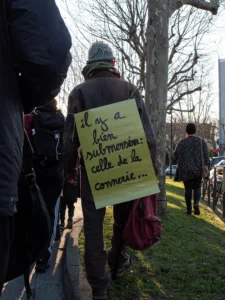 il y a
bien
submersion:
celle de la
connerie...